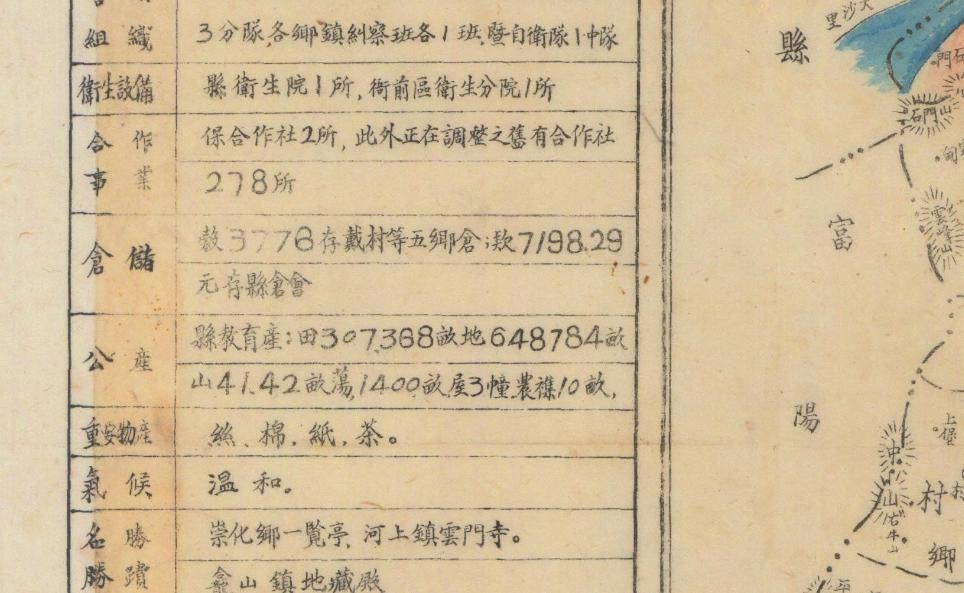 組織 3分隊,各鄉鎮糾察班各1班,暨自衛隊1中隊
衛生設備 縣衛生院1所,衙前區衛生分院1所
合作 保合作社2所,此外正在調整之舊有合作社
事業 278所
倉儲 穀3776存戴村等五鄉倉;欵7198.29
元存縣倉會
公產 縣教育產:田307,368畝地648784畝
山41.42畝蕩,1400畝屋3幢農襍10畝,
重要物產 絲.棉.紙.茶。
氣候 溫和。
名勝 崇化鄉一覽亭,河上鎮雲門寺。
勝蹟 龕山鎮地藏殿
縣
富
陽
大沙里
石門山
雲峰山
上堡
村
鄉